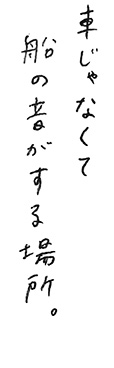 車じゃなくて
船の音がする場所。